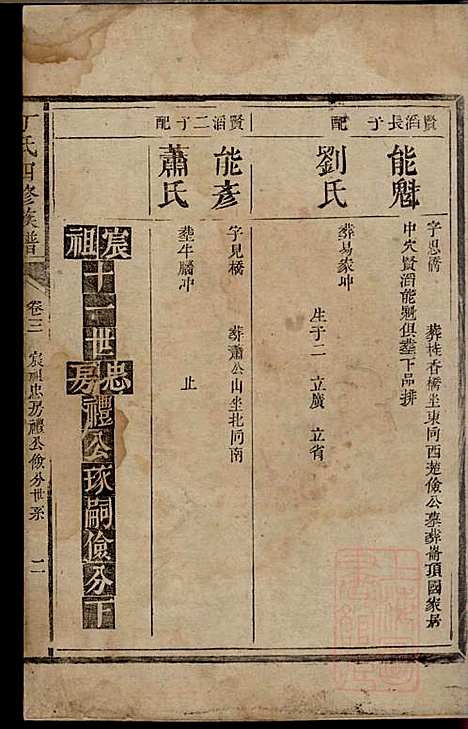 賢滔長子
能魁
字思儕
葬桂香橋坐東向西楚儉公墓葬崙頂國家居
中穴賢滔能魁俱葬下品排
配
劉氏
葬易家坤
生子二 立廣 立省
賢滔二子
能彥
字見橋
葬蕭公山坐北向南
配
蕭氏
葬牛腸冲
止
宸祖十一世忠房禮公琢嗣儉分下
丁氏四修族譜
卷三
宸祖忠房禮公儉分世系
二